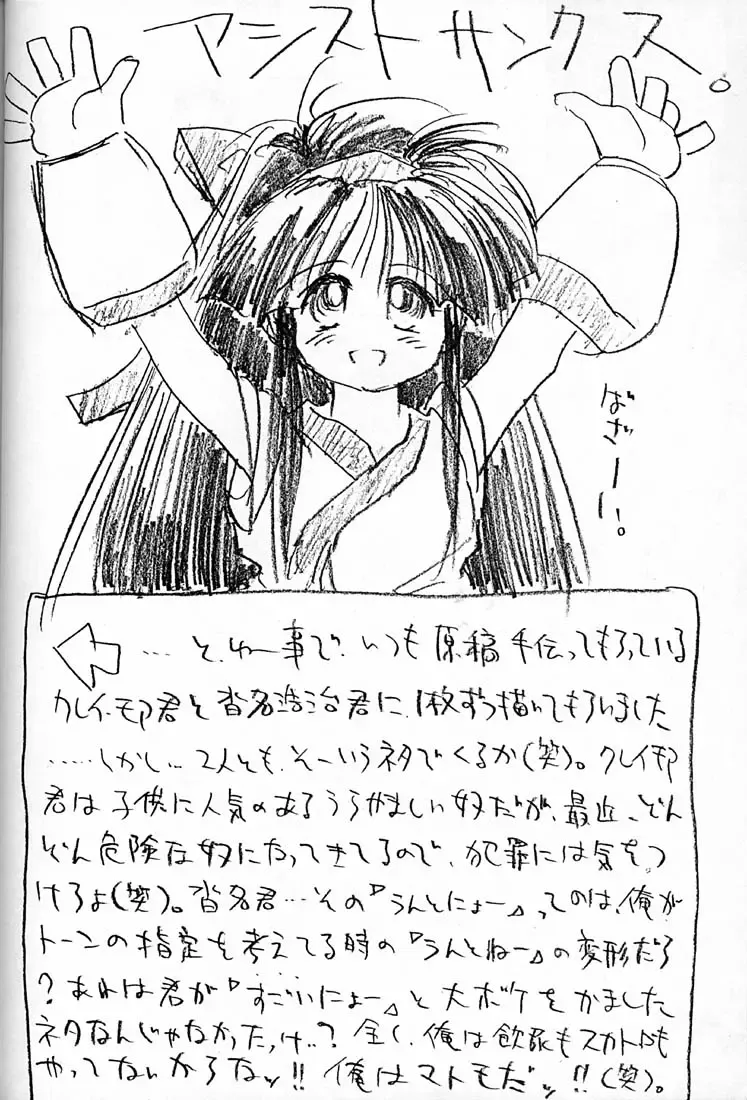 アシストサンクス。
ばざーー。
…と、ゆー事で、いつも原稿手伝ってもらっている
クレイ・邪君と沓名浩治君に、1枚ずつ描いてもらいました
……しかし…2人とも、そーいうネタでくるか(笑)。クレイ邪
君は子供に人気のあるうらやましい奴だが、最近、どん
どん危険な奴になってきてるので、犯罪には気をつ
けろよ(笑)。沓名君…その『うんとにょー』ってのは、俺が
トーンの指定を考えてる時の『うんとねー』の変形だろ
?あれは君が『すごいにょー』と大ボケをかました
ネタなんじゃなかったっけ..?全く、俺は飲尿もスカトロも
やってないからなッ!!俺はマトモだッ!!(笑)。